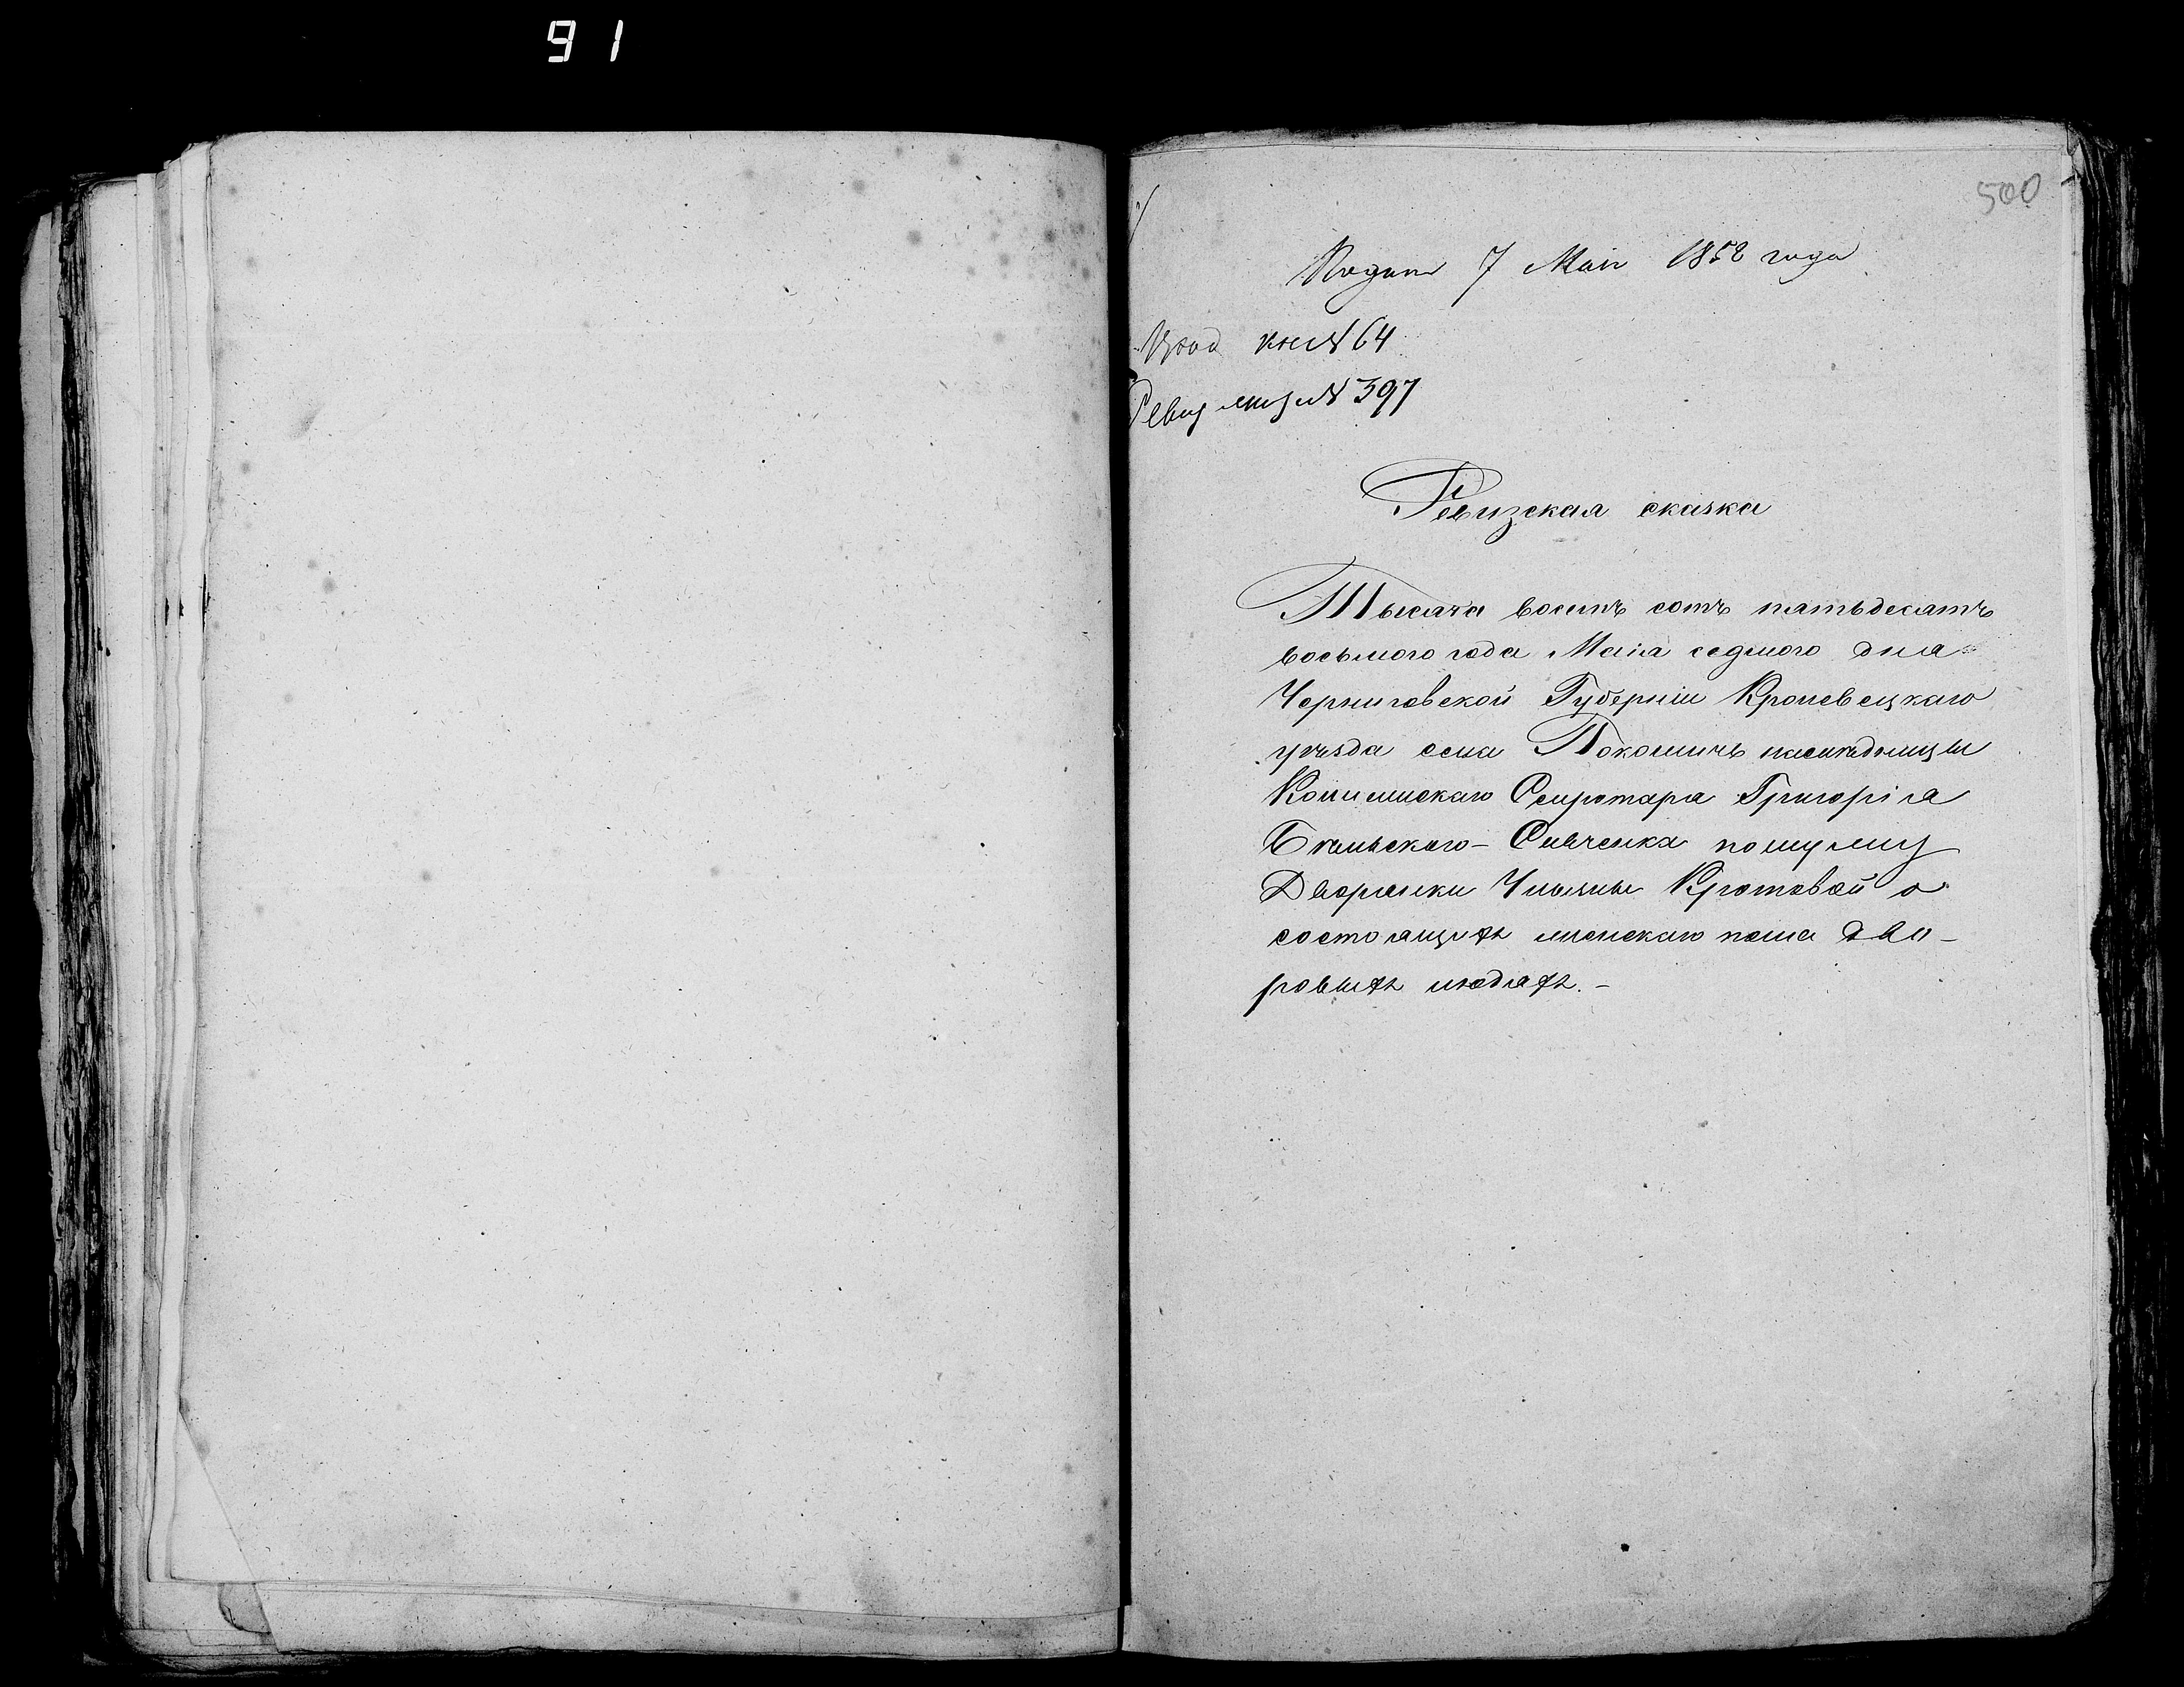 91
500
Подана 7 Мая 1858 года
Уезд кн № 64
Ревиз № 397
Ревизская сказка
Тысяча восемь сотъ пятьдесятъ
восьмого года Маія седмого дня
Черниговской Губерніи Кролевецкаго
уѣзда села Покошичь наслѣдницы
Колижскаго Секретара Григорія
Бѣльского-Силченка по мужу
Дворянки Ульяны Кротовой о
состоящихъ женскаго пола дво-
ровыхъ людяхъ.-